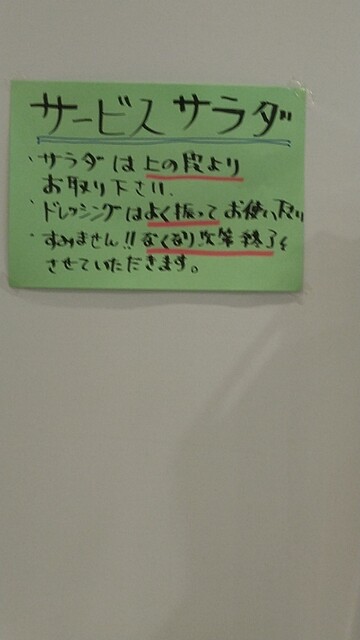 サービスサラダ
・サラダは上の段より
お取り下さい.
・ドレッシングはよく振ってお使い下さい
・すみません!!なくなり次第終了を
させていただきます。